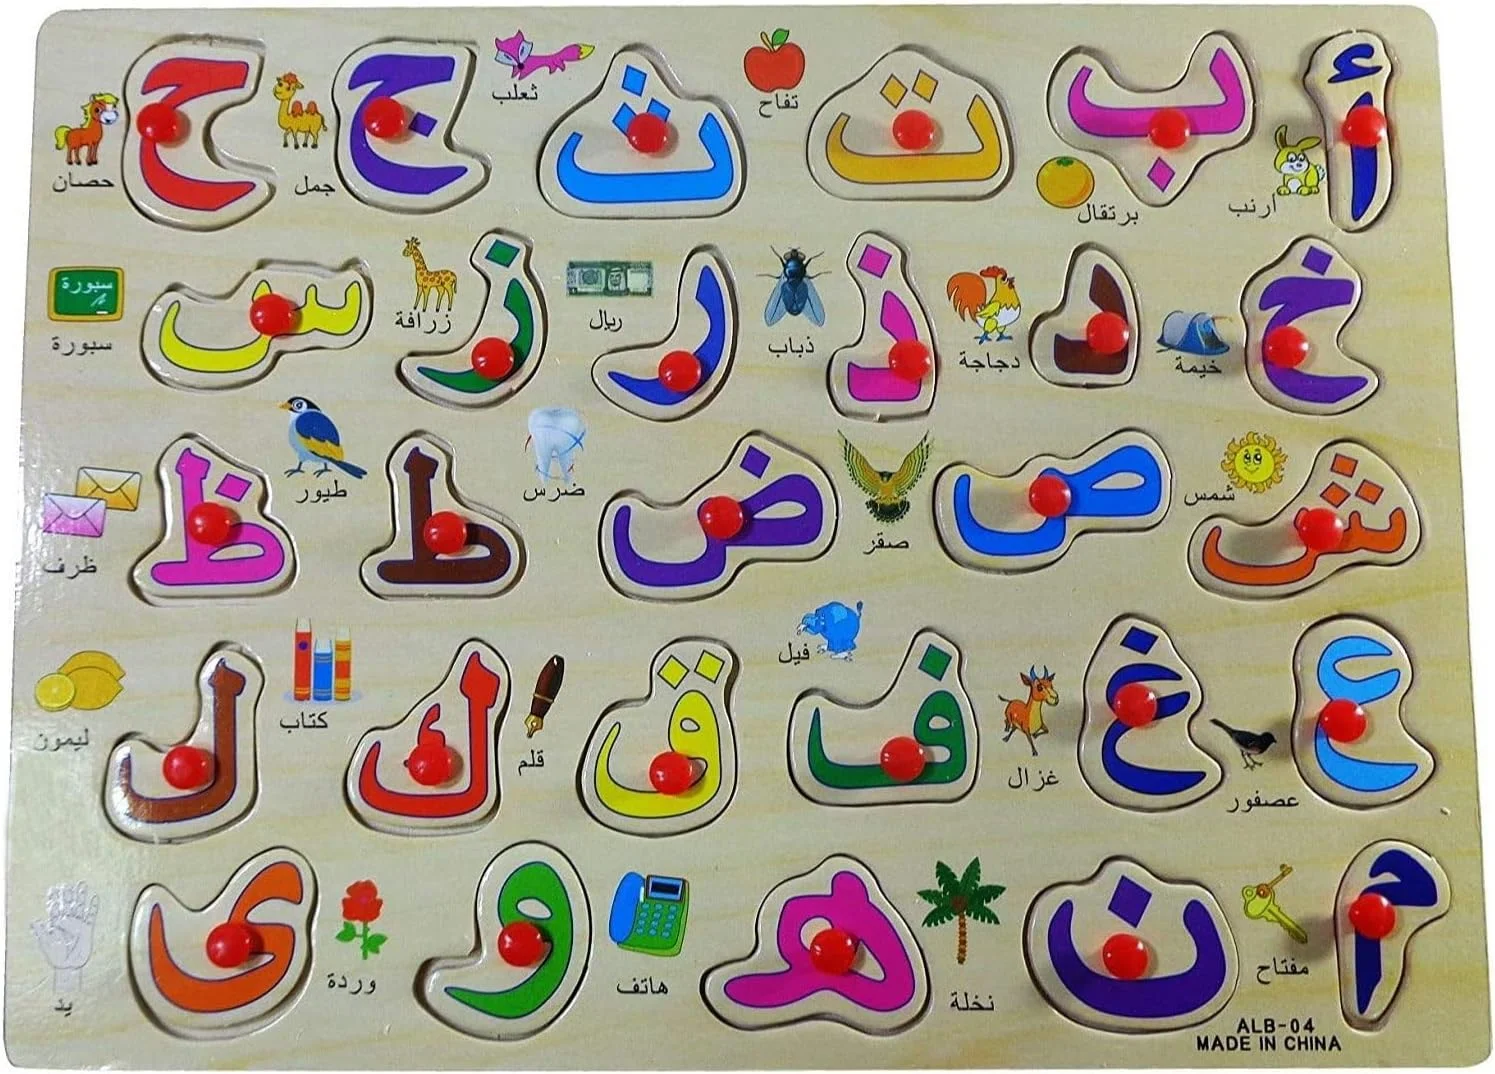 أ ب ت ث ج ح
ارنب برتقال تفاح ثعلب جمل حصان
خ د ذ ر ز س
خيمة دجاجة ذباب ريال زرافة سبورة
سبورة
ش ص ض ط ظ
شمس صقر ضرس طيور ظرف
ع غ ف ق ك ل
عصفور غزال فيل قلم كتاب ليمون
م ن ه و ى
مفتاح نخلة هاتف وردة يد
ALB-04
MADE IN CHINA